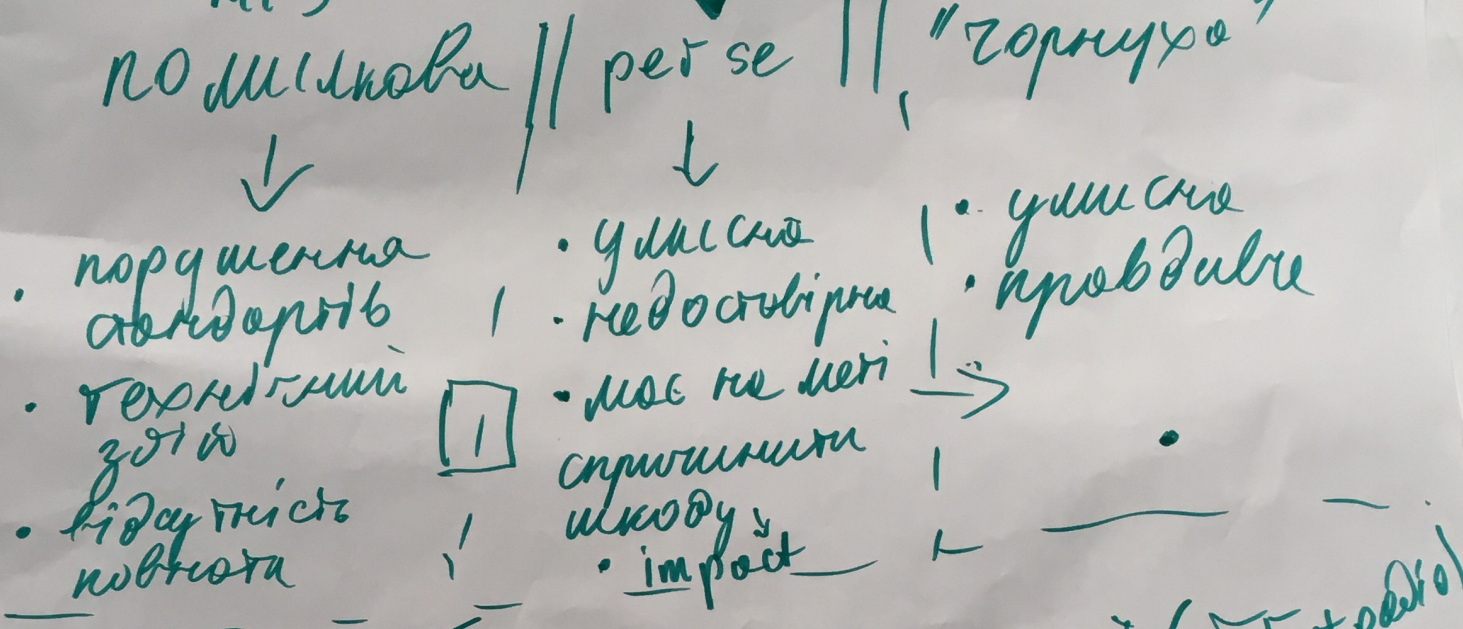 помилкова || per se || "чорнуха"
порушення
стандартів
технічний
збій
відсутність
повноти
умисна
недостовірна
має на меті
спричинити
шкоду
impact
умисна
правдиве
+ радіо)